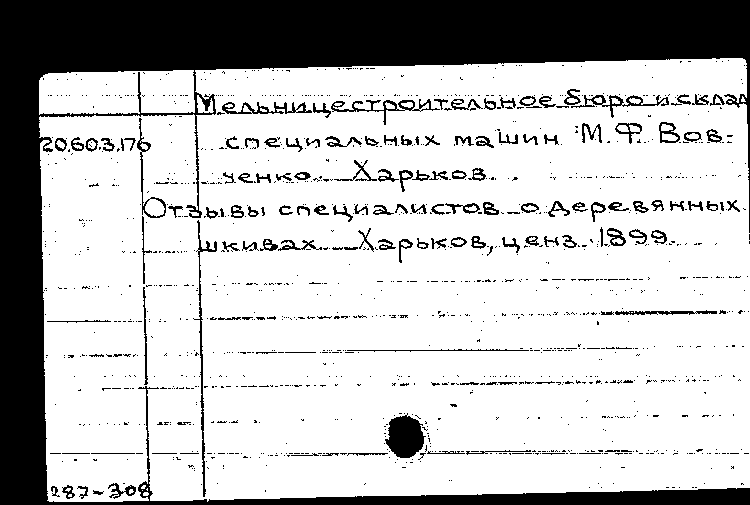 Мельницестроительное бюро и склад
20.603.176 специальных машин М.Ф. Вов-
ченко. Харьков.
Отзывы специалистов о деревянных
шкивах. Харьков, ценз. 1899.
287-308